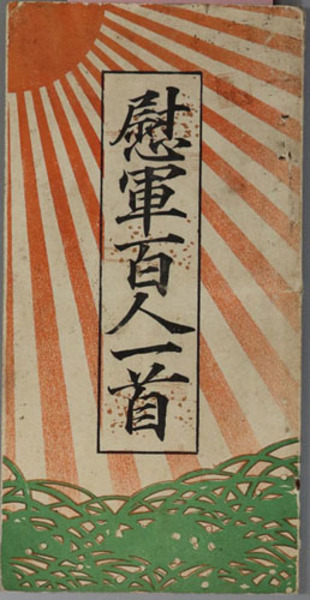 慰軍百人一首